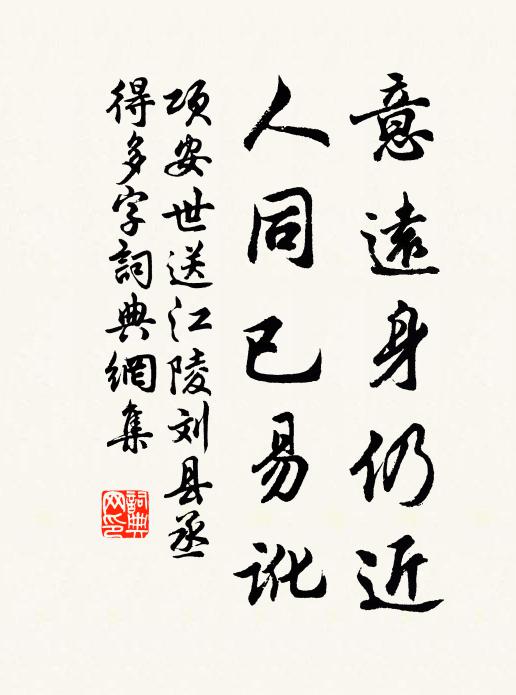 意遠身仍近
人同已易訛
项安世送江陵刘县丞
得多字詞典網集
詞典
网印